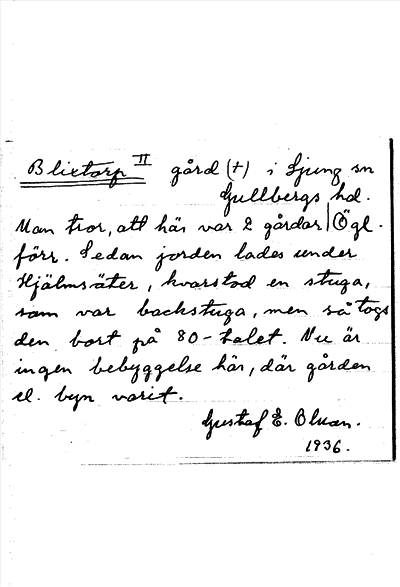 Blixtorp II gård (†) i Ljung sn
Gullbergs hd.
Man tror, att här var 2 gårdar Ögl.
förr. Sedan jorden lades under
Hjälmsäter, kvarstod en stuga,
som var backstuga, men så togs
den bort på 80-talet. Nu är
ingen bebyggelse här, där gården
el. byn varit.
Gustaf E. Olsson.
1936.